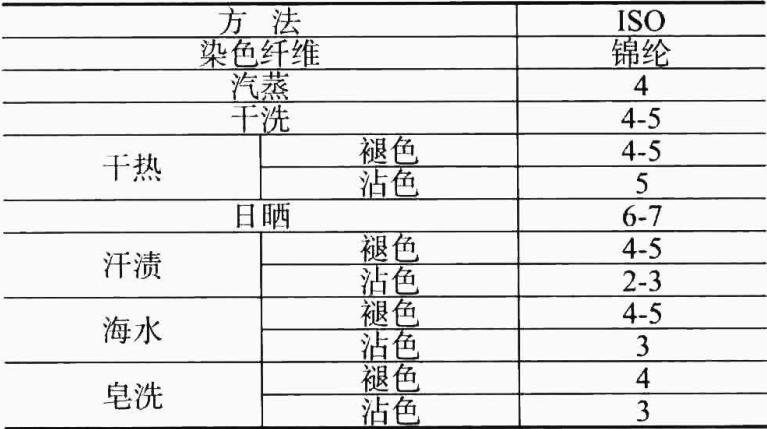 方 法 ISO
染色纤维 锦纶
汽蒸 4
干洗 4-5
干热 褪色 4-5
沾色 5
日晒 6-7
汗渍 褪色 4-5
沾色 2-3
海水 褪色 4-5
沾色 3
皂洗 褪色 4
沾色 3